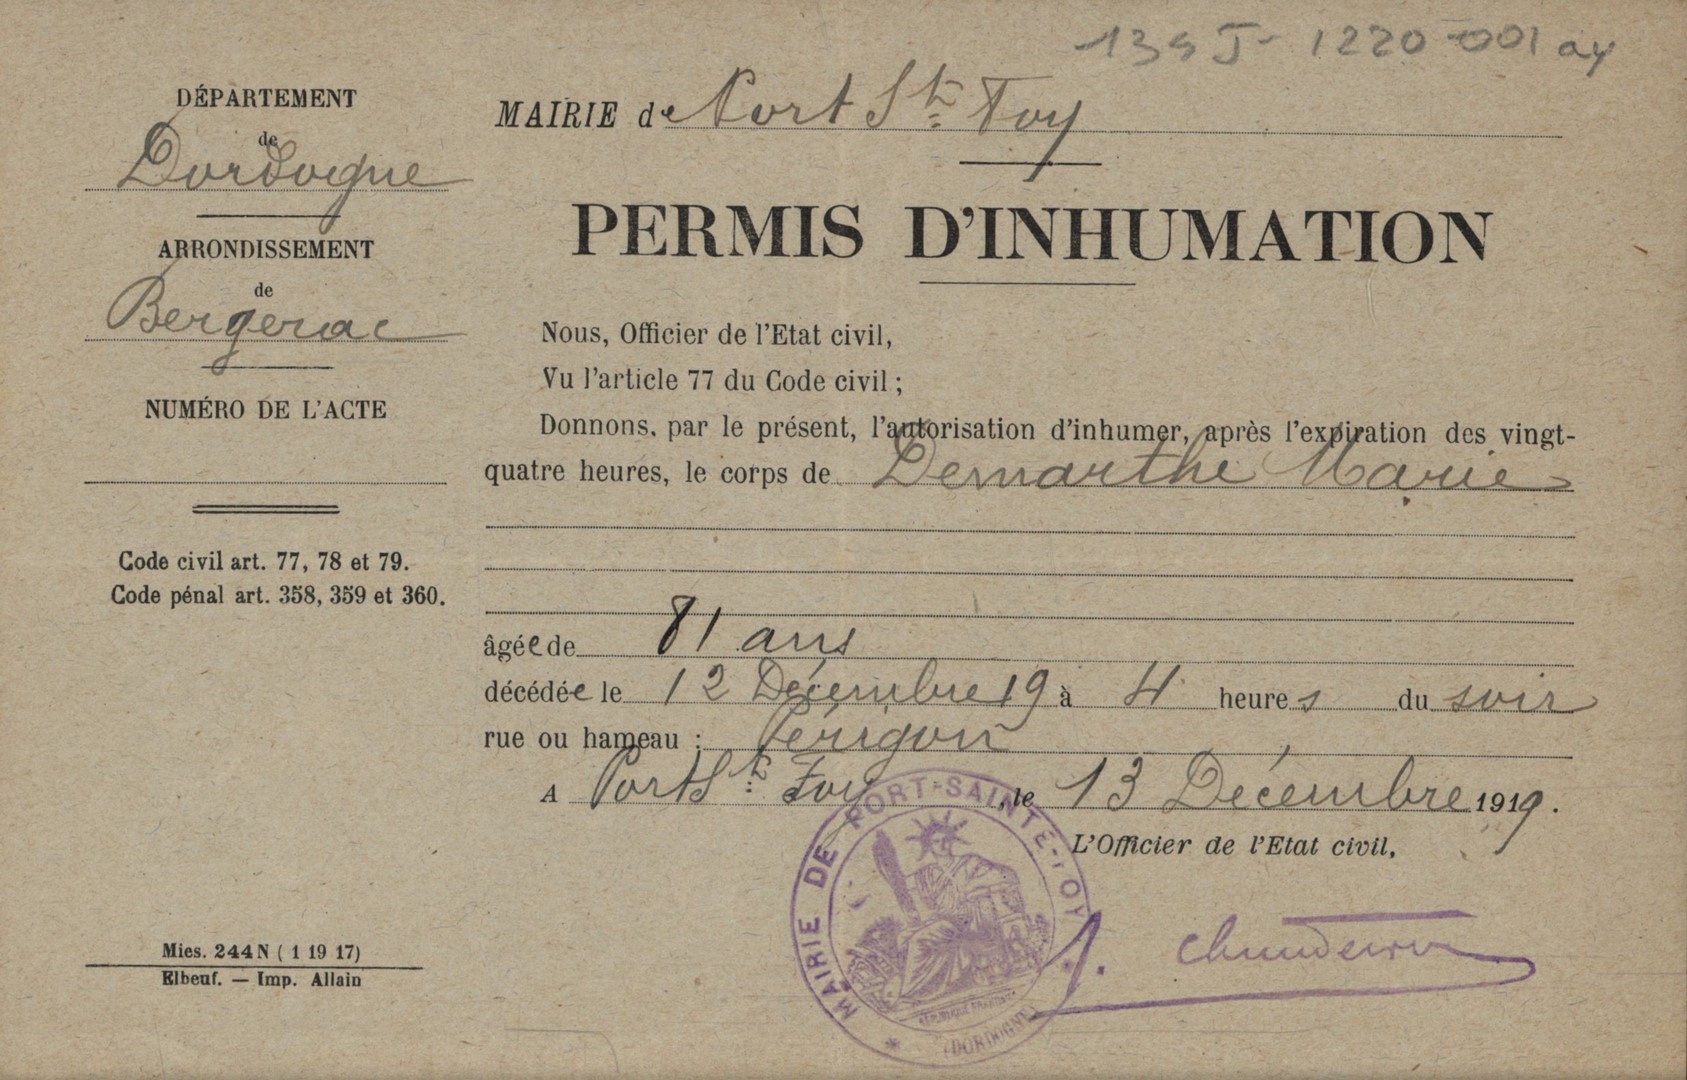 139 J- 1220-001 ay
DÉPARTEMENT
de
Dordogne
ARRONDISSEMENT
de
Bergerac
NUMÉRO DE L'ACTE
Code civil art. 77, 78 et 79.
Code pénal art. 358, 359 et 360.
Mies. 244 N ( 1 19 17)
Elbeuf. — Imp. Allain
MAIRIE de Port Ste Foy
PERMIS D'INHUMATION
Nous, Officier de l'Etat civil,
Vu l'article 77 du Code civil ;
Donnons, par le présent, l'autorisation d'inhumer, après l'expiration des vingt-
quatre heures, le corps de Demarthe Marie
âgée de 81 ans
décédée le 12 Décembre 19 à 4 heures du soir
rue ou hameau : Périgon
A Port Ste Foy, le 13 Décembre 1919.
L'Officier de l'Etat civil,
MAIRIE DE PORT-SAINTE-FOY
(DORDOGNE)